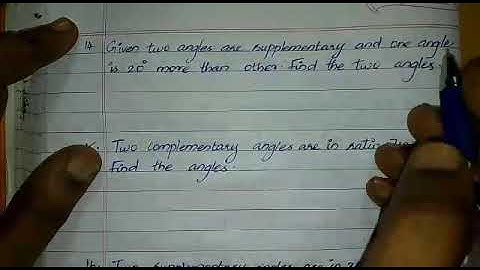 14 Given two angles are supplementary and one angle
is 20° more than other Find the two angles.
Two complementary angles are in ratio
Find the angles.
Two supplementary angles are in